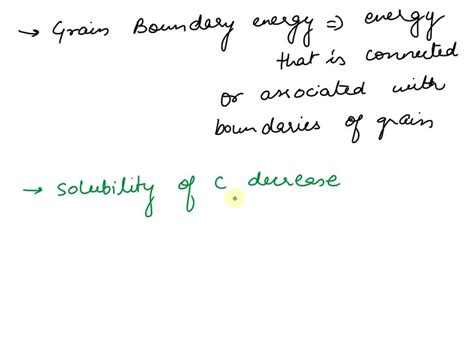 → Grain Boundary energy ⇒ energy
that is connected
or associated with
boundaries of grain
→ Solubility of C decrease